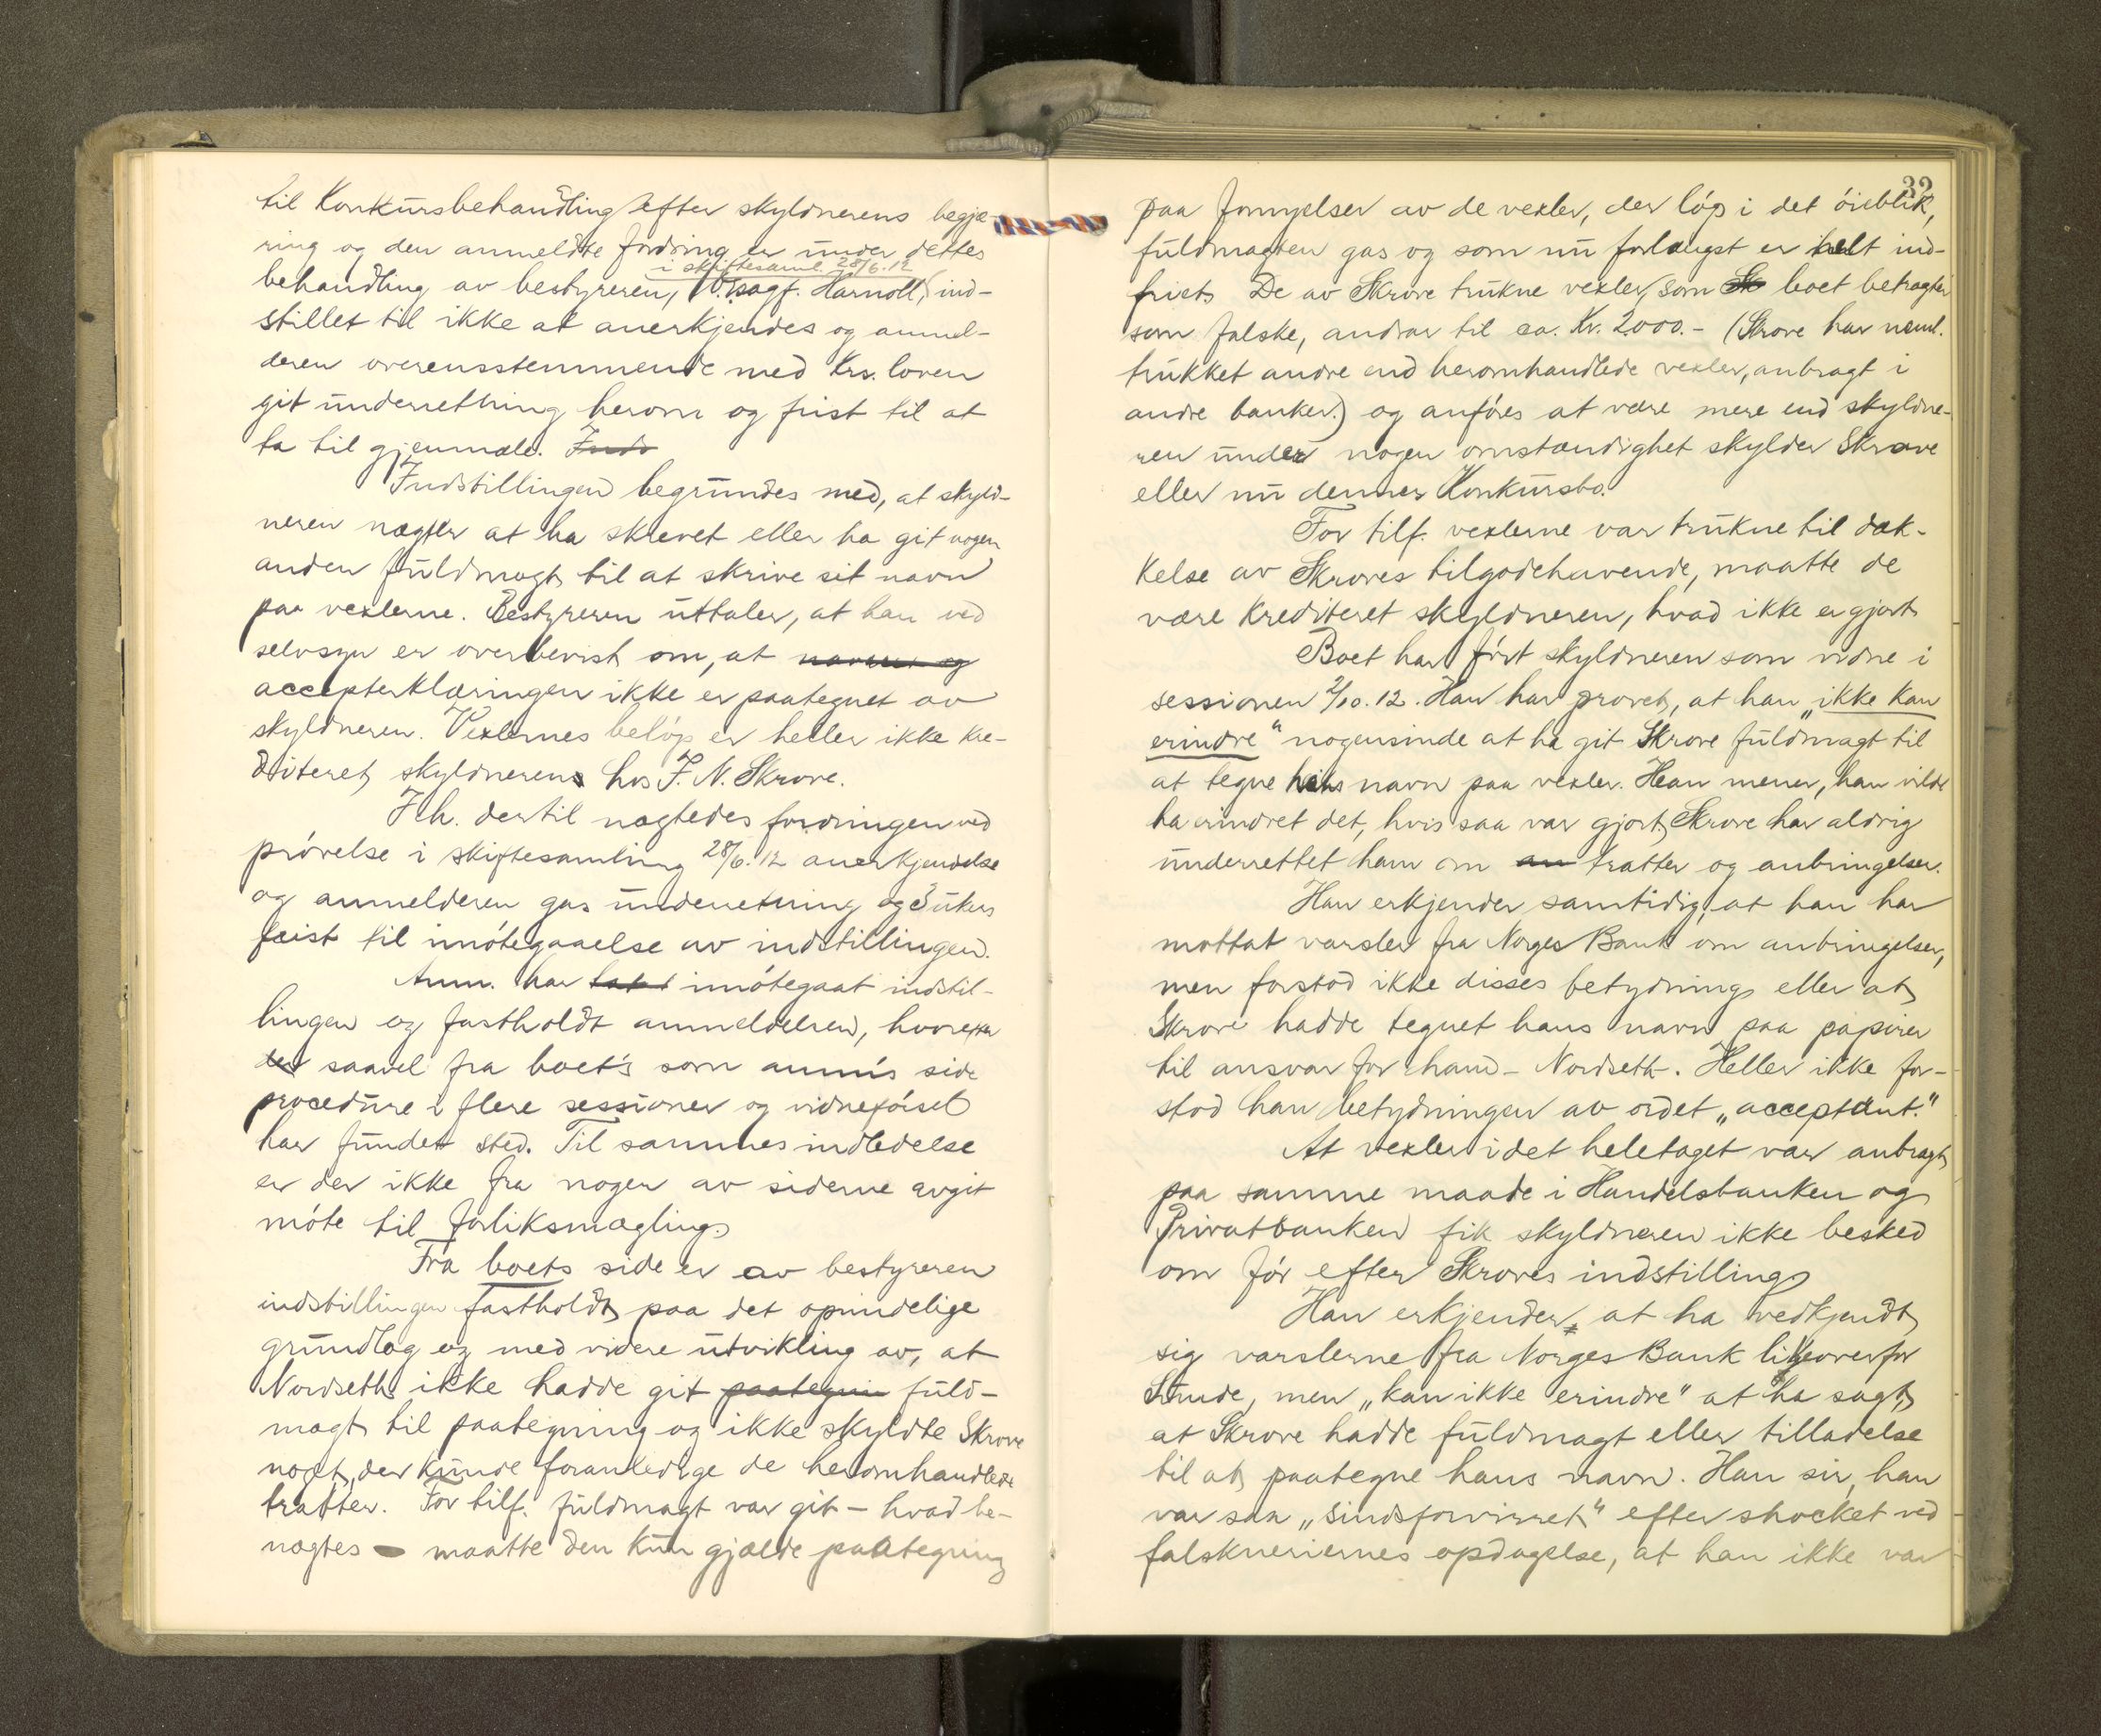 til Konkursbehandling efter skyldnerens begjæ-
ring og den anmeldte fordring er under dettes
i skiftesaml. 28/6.12
behandling av bestyreren, O.sagf. Harnoll, ind-
stillet til ikke at anerkjendes og anmel-
deren overensstemmende med Krs. loven
git underretning herom og frist til at
ta til gjenmæle. Inds
Indstillingen begrundes med, at skyld-
neren nægter at ha skrevet eller ha git nogen
anden fuldmagt til at skrive sit navn
paa vexlerne. Bestyreren uttaler, at han ved
selvsyn er overbevist om, at navnet og
accepterklæringen ikke er paategnet av
skyldneren. Vexlernes beløp er heller ikke kre-
diteret skyldnerens hos J. N. Skrove.
I h. dertil nægtedes fordringen ved
prøvelse i skiftesamling 28/6.12 anerkjendelse
og anmelderen gas underretning og 3 ukers
frist til imøtegaaelse av indstillingen.
Anm. har tat t imøtegaat indstil-
lingen og fastholdt anmeldelsen, hvorefter
der saavel fra boet's som anm's side
procedure i flere sessioner og vidneførsel
har fundet sted. Til sammes indledelse
er der ikke fra nogen av siderne avgit
møte til forliksmægling.
Fra boets side er av bestyreren
indstillingen fastholdt paa det oprindelige
grundlag og med videre utvikling av, at
Nordseth ikke hadde git paategnin fuld-
magt til paategning og ikke skyldte Skrove
noget, der kunde foranledige de heromhandlede
tratter. For tilf. fuldmagt var git – hvad be-
nægtes – maatte den kun gjælde paategning
32
paa fornyelser av de vexler, der løp i det øieblik,
fuldmagten gas og som nu forlængst er helt ind-
friet. De av Skrove trukne vexler, som Sk boet betragter
som falske, andrar til ca. Kr. 2000.- (Skrove har neml.
trukket andre end heromhandlede vexler, anbragt i
andre banker.) og anføres at være mere end skyldne-
ren under nogen omstændighet skylder Skrove
eller nu dennes Konkursbo.
For tilf. vexlerne var trukne til dæk-
kelse av Skroves tilgodehavende, maatte de
være krediteret skyldneren, hvad ikke er gjort.
Boet har ført skyldneren som vidne i
sessionen 2/10.12. Han har provet, at han „ikke kan
erindre" nogensinde at ha git Skrove fuldmagt til
at tegne hans navn paa vexler. Han mener, han vilde
ha erindret det, hvis saa var gjort. Skrove har aldrig
underrettet ham om an tratter og anbringelser.
Han erkjender samtidig, at han har
mottat varsler fra Norges Bank om anbringelser,
men forstod ikke disses betydning eller at
Skrove hadde tegnet hans navn paa papirer
til ansvar for ham – Nordseth -. Heller ikke for-
stod han betydningen av ordet „acceptant."
At vexler i det heletaget var anbragt
paa samme maade i Handelsbanken og
Privatbanken fik skyldneren ikke besked
om før efter Skroves indstilling.
Han erkjender, at ha vedkjendt
sig varslerne fra Norges Bank likeoverfor
Sunde, men „kan ikke erindre" at ha sagt,
at Skrove hadde fuldmagt eller tilladelse
til at paategne hans navn. Han sir, han
var saa „sindsforvirret" efter shocket ved
falskneriernes opdagelse, at han ikke var